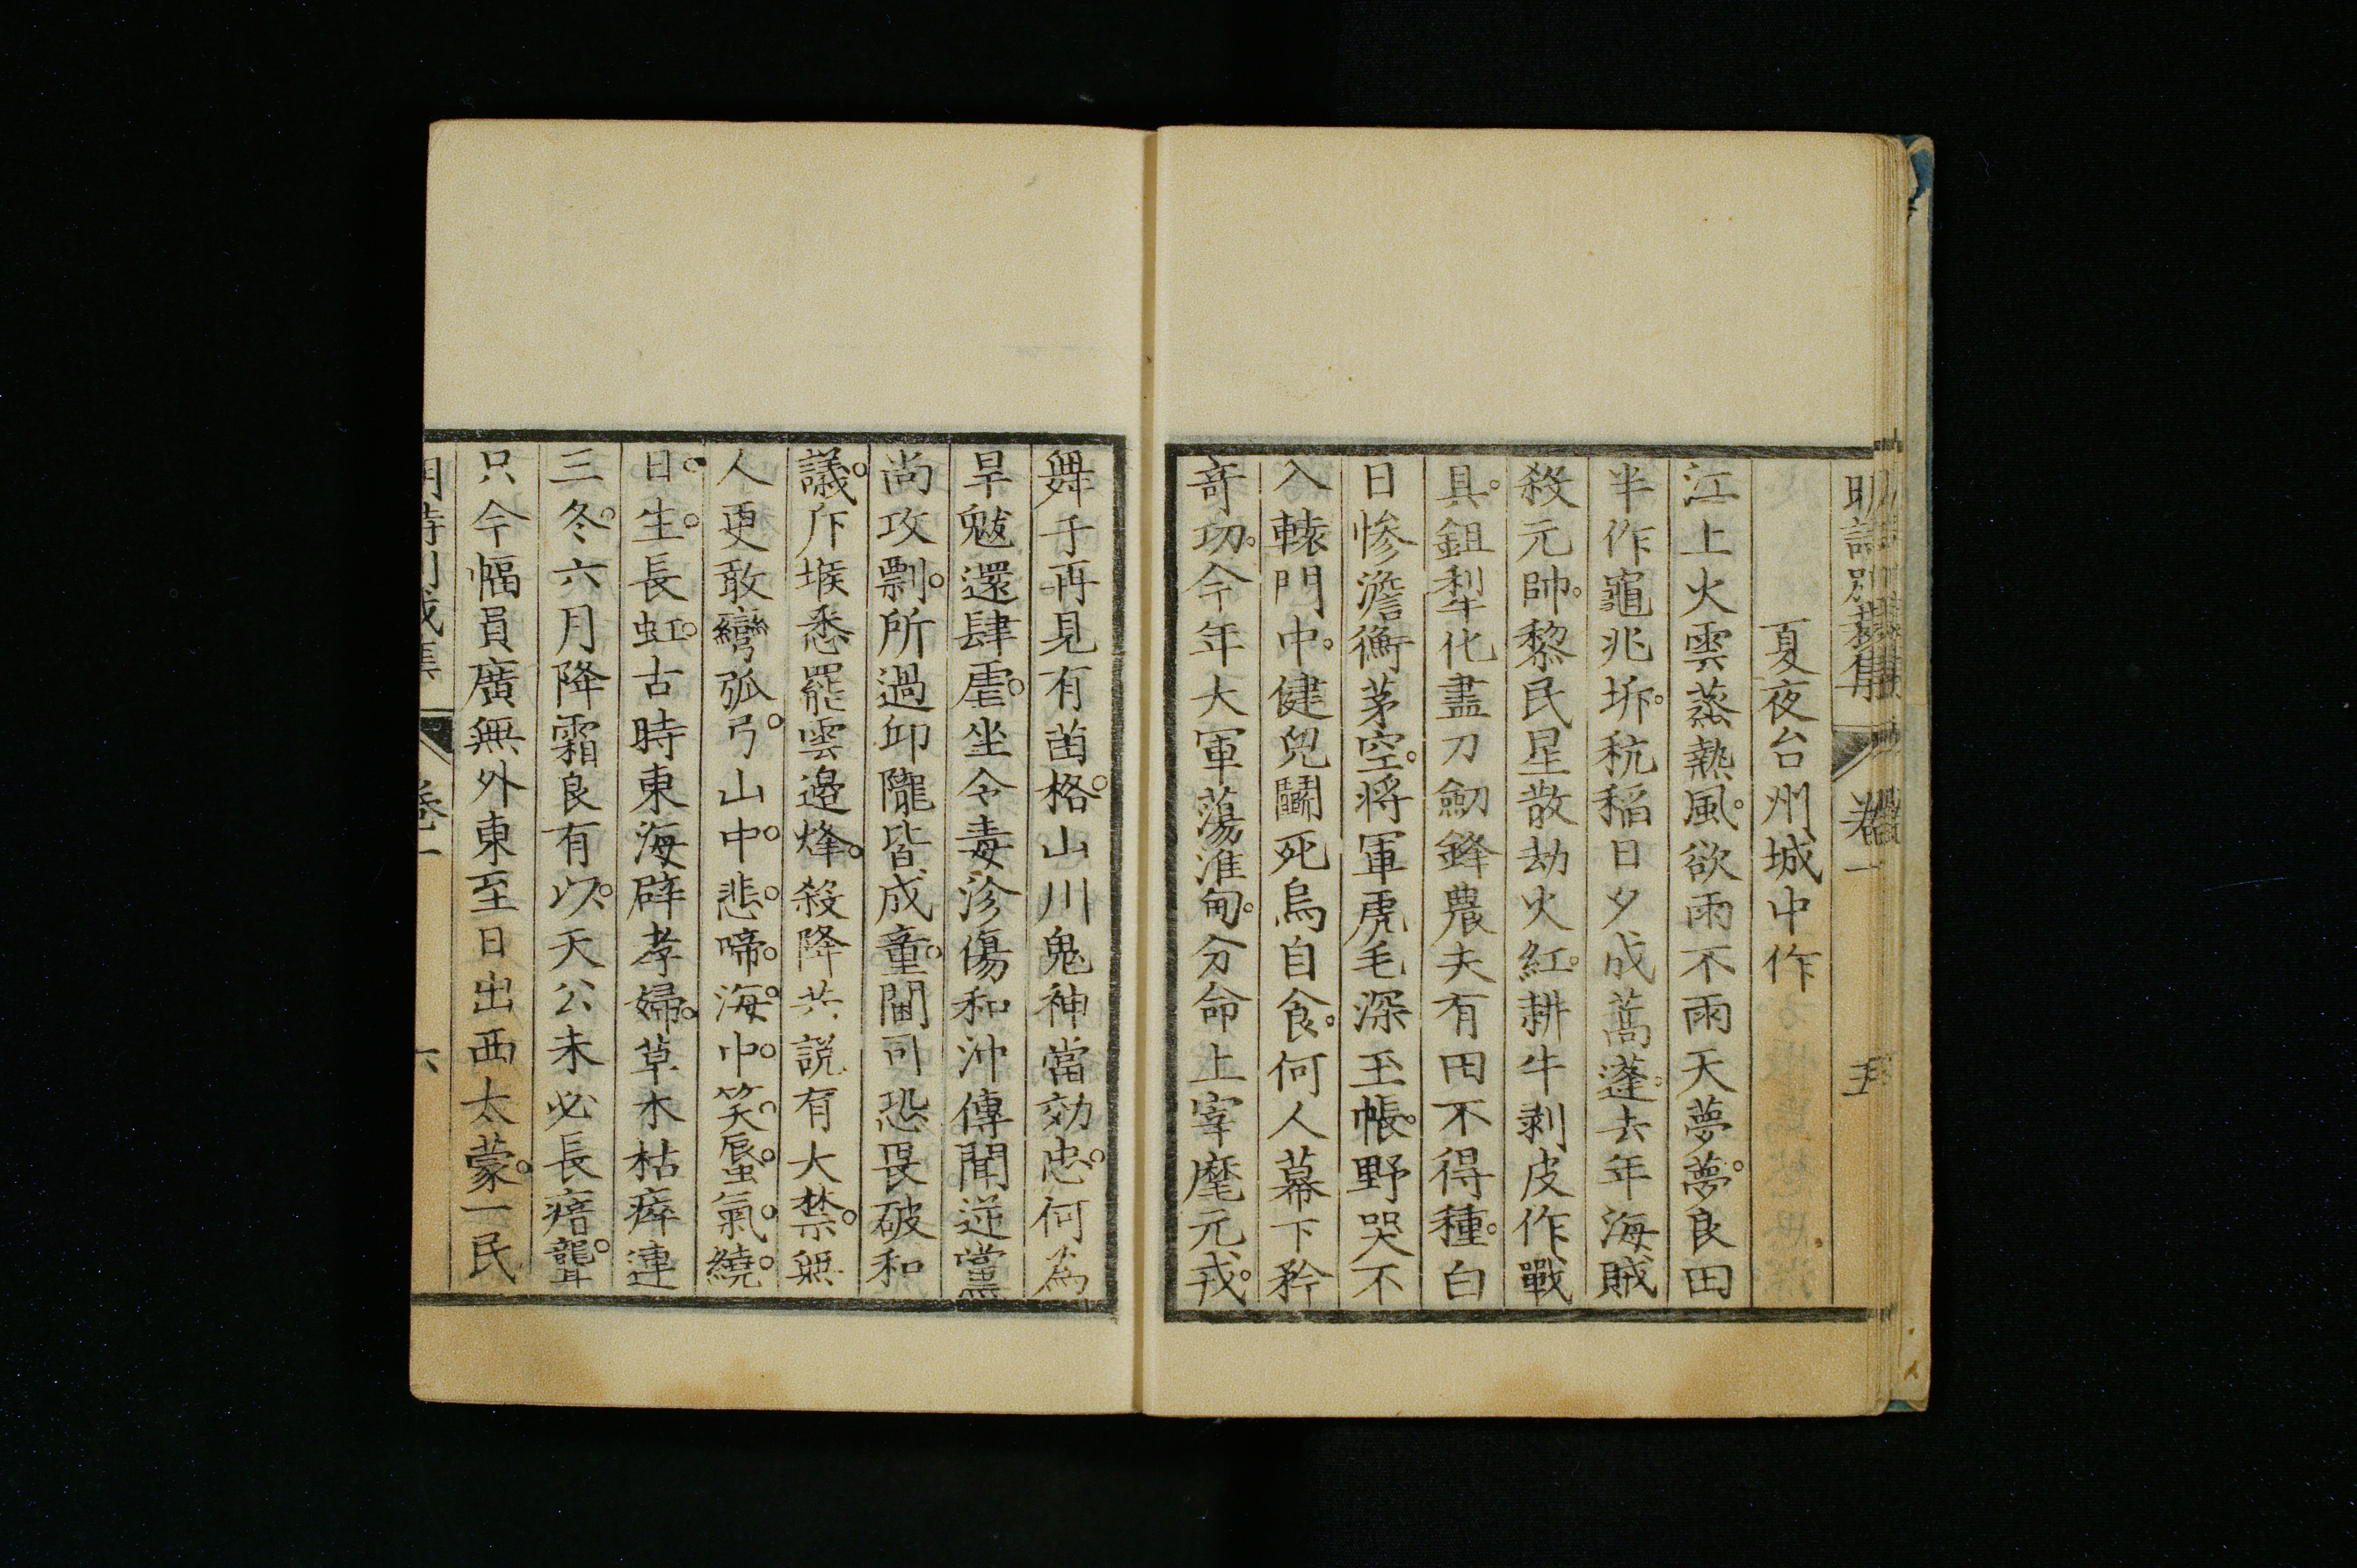 明詩別裁集 卷一 五
夏夜台州城中作
江上火雲蒸熱風。欲雨不雨天夢夢。良田
半作龜兆坼。秔稻日夕成蒿蓬。去年海賊
殺元帥。黎民星散劫火紅。耕牛剥皮作戰
具。鉏犁化盡刀劒鋒。農夫有田不得種。白
日慘澹衡茅空。將軍虎毛深玉帳。野哭不
入轅門中。健兒鬭死烏自食。何人幕下矜
奇功。今年大軍蕩淮甸。分命上宰麾元戎。
舞干再見有苗格。山川鬼神當効忠。何為
旱魃還肆虐。坐令毒沴傷和沖。傳聞逆黨
尚攻剽。所過邱隴皆成童。閫司恐畏破和
議。斥堠悉罷雲邊烽。殺降共説有大禁。無
人更敢彎弧弓。山中悲啼海中笑。蜃氣繞
日生長虹。古時東海辟孝婦。草木枯瘁連
三冬。六月降霜良有以。天公未必長瘖聾。
只今幅員廣無外。東至日出西太蒙。一民
卷一 六